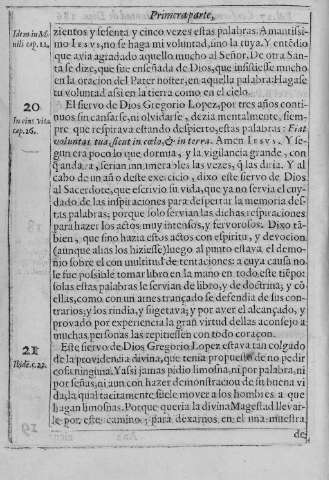 Primera parte,
Idem in Monili cap. 12.
zientos y sesenta y cinco vezes estas palabras. Amantissi
mo IESVS, no se haga mi voluntad, sino la tuya. Y entēdio
que avia agradado aquello mucho al Señor. De otra San-
ta se dize, que fue enseñada de Dios, que insistiesse mucho
en la oracion del Pater noster, en aquella palabra: Hagase
tu voluntad assi en la tierra como en el cielo.
20
In eius vita cap. 16.
El siervo de Dios Gregorio Lopez, por tres años conti-
nuos sin cansarse, ni olvidarse, dezia mentalmente, siem-
pre que respirava estando despierto, estas palabras: Fiat
voluntas tua, sicut in cœlo, & in terra. Amen IESVS. Y se-
gun era poco lo que dormia, y la vigilancia grande, con
q̄ andara, serian innumerables las vezes, q̄ las diria. Y al
cabo de un año deste exercicio, dixo este siervo de Dios
al Sacerdote, que escrivio su vida, que ya no servia el cuy-
dado de las inspiraciones para despertar la memoria des-
tas palabras; porque solo servian las dichas respiraciones
para hazer los actos muy intensos, y fervorosos. Dixo tā-
bien, que sino hazia estos actos con espiritu, y devocion
(aunque alias los hiziesse) luego al punto estava el demo-
nio sobre el con multitud de tentaciones: a cuya causa no
le fue possible tomar libro en la mano en todo este tiēpo:
solas estas palabras le servian de libro, y de doctrina; y cō
ellas, como con un arnes trançado se defendia de sus con-
trarios; y los rindia, y sugetava; y por aver el alcançado, y
provado por experiencia la gran virtud dellas aconsejo a
muchas personas las repitiessen con todo coraçon.
21
Ibidē. c. 22.
Este siervo de Dios Gregorio Lopez estava tan colgado
de la providencia divina, que tenia proposito de no pedir
cosa ninguna. Y assi jamas pidio limosna, ni por palabra, ni
por señas, ni aun con hazer demonstracion de su buena vi
da, la qual tacitamente suele mover a los hombres a que
hagan limosnas. Porque queria la divina Magestad llevar-
le por este camino, para dexarnos en el una muestra
de